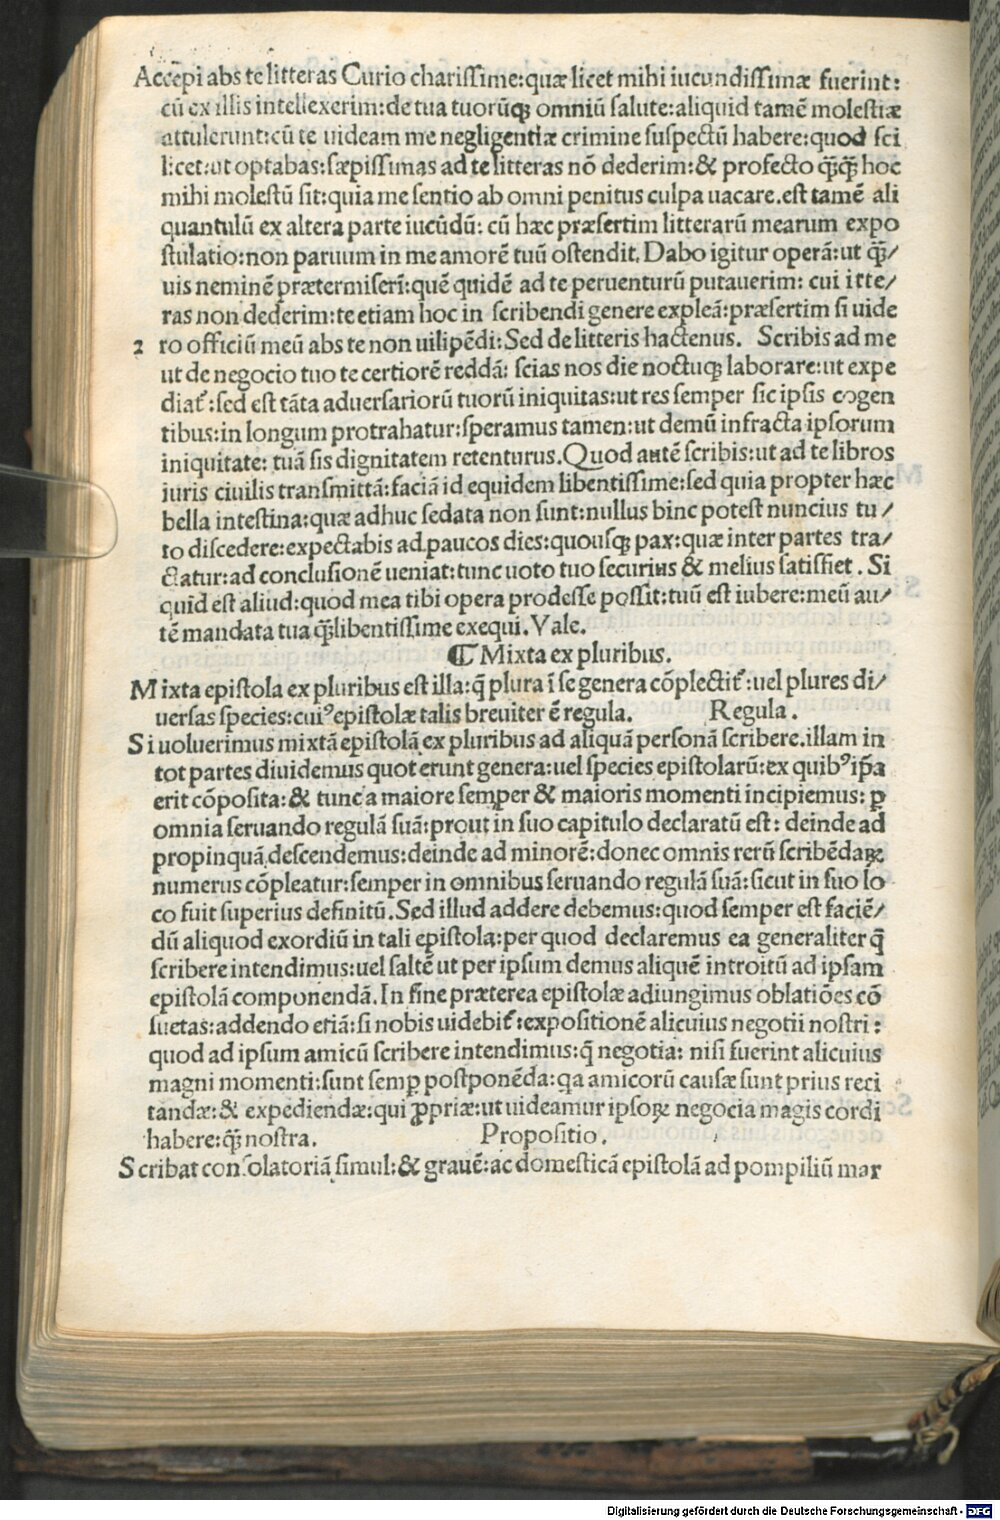 Accepi abs te litteras Curio charissime: quæ licet mihi iucundissimæ fuerint:
cū ex illis intellexerim: de tua tuorūqꝫ omniū salute: aliquid tamē molestiæ
attulerunt: cū te uideam me negligentiæ crimine suspectū habere: quod sci
licet: ut optabas: sæpissimas ad te litteras nō dederim: & profecto q̄q̄ hoc
mihi molestū sit: quia me sentio ab omni penitus culpa uacare. est tamē ali
quantulū ex altera parte iucūdū: cū hæc præsertim litterarū mearum expo
stulatio: non paruum in me amorē tuū ostendit. Dabo igitur operā: ut q̄/
uis neminē prætermiserī: quē quidē ad te peruenturū putauerim: cui itte/
ras non dederim: te etiam hoc in scribendi genere expleā: præsertim si uide
2 ro officiū meū abs te non uilipēdi: Sed de litteris hactenus. Scribis ad me
ut de negocio tuo te certiorē reddā: scias nos die noctuqꝫ laborare: ut expe
diat᷑: sed est tāta aduersariorū tuorū iniquitas: ut res semper sic ipsis cogen
tibus: in longum protrahatur: speramus tamen: ut demū infracta ipsorum
iniquitate: tuā sis dignitatem retenturus. Quod autē scribis: ut ad te libros
iuris ciuilis transmittā: faciā id equidem libentissime: sed quia propter hæc
bella intestina: quæ adhuc sedata non sunt: nullus hinc potest nuncius tu/
to discedere: expectabis ad paucos dies: quousqꝫ pax: quæ inter partes tra/
ctatur: ad conclusionē ueniat: tunc uoto tuo securius & melius satisfiet. Si
quid est aliud: quod mea tibi opera prodesse possit: tuū est iubere: meū au/
tē mandata tua q̄libentissime exequi. Vale.
¶ Mixta ex pluribus.
Mixta epistola ex pluribus est illa: q̄ plura ī se genera cōplectit᷑: uel plures di/
uersas species: cuiꝰ epistolæ talis breuiter ē regula. Regula.
Si uoluerimus mixtā epistolā ex pluribus ad aliquā personā scribere. illam in
tot partes diuidemus quot erunt genera: uel species epistolarū: ex quibꝰ ip̄a
erit cōposita: & tunc a maiore semper & maioris momenti incipiemus: ꝑ
omnia seruando regulā suā: prout in suo capitulo declaratū est: deinde ad
propinquā descendemus: deinde ad minorē: donec omnis rerū scribēdaꝝ
numerus cōpleatur: semper in omnibus seruando regulā suā: sicut in suo lo
co fuit superius definitū. Sed illud addere debemus: quod semper est faciē/
dū aliquod exordiū in tali epistola: per quod declaremus ea generaliter q̄
scribere intendimus: uel saltē ut per ipsum demus aliquē introitū ad ipsam
epistolā componendā. In fine præterea epistolæ adiungimus oblatiōes cō
suetas: addendo etiā: si nobis uidebit᷑: expositionē alicuius negotii nostri:
quod ad ipsum amicū scribere intendimus: q̄ negotia: nisi fuerint alicuius
magni momenti: sunt semꝑ postponēda: qa amicorū causæ sunt prius reci
tandæ: & expediendæ: qui ꝓpriæ: ut uideamur ipsoꝝ negocia magis cordi
habere: q̄ nostra. Propositio.
Scribat consolatoriā simul: & grauē: ac domesticā epistolā ad pompiliū mar
Digitalisierung gefördert durch die Deutsche Forschungsgemeinschaft - DFG